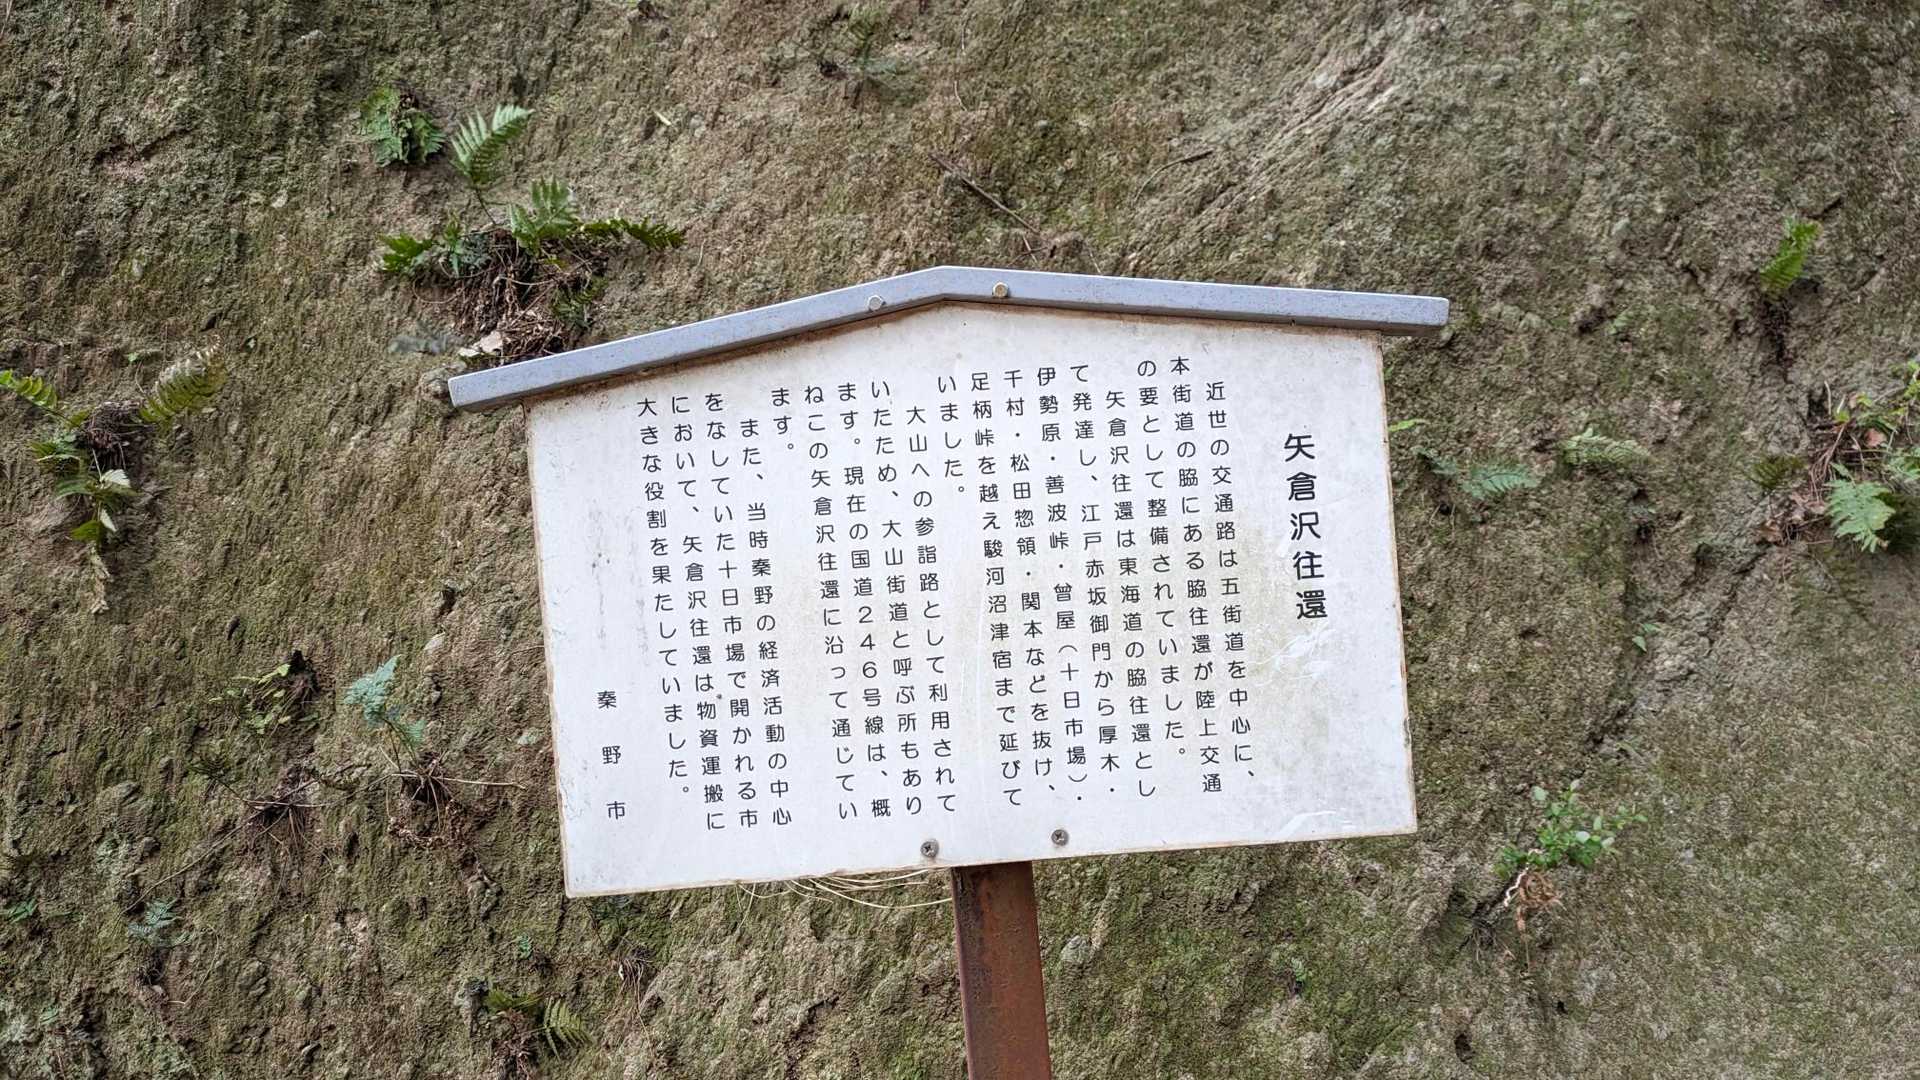 矢倉沢往還
近世の交通路は五街道を中心に、
本街道の脇にある脇往還が陸上交通
の要として整備されていました。
矢倉沢往還は東海道の脇往還とし
て発達し、江戸赤坂御門から厚木・
伊勢原・善波峠・曾屋（十日市場）・
千村・松田惣領・関本などを抜け、
足柄峠を越え駿河沼津宿まで延びて
いました。
大山への参詣路として利用されて
いたため、大山街道と呼ぶ所もあり
ます。現在の国道２４６号線は、概
ねこの矢倉沢往還に沿って通じてい
ます。
また、当時秦野の経済活動の中心
をなしていた十日市場で開かれる市
において、矢倉沢往還は物資運搬に
大きな役割を果たしていました。
秦野市